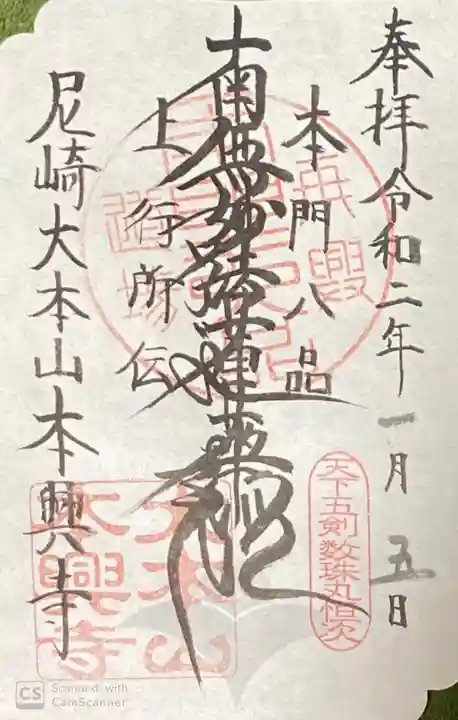 奉拝令和二年一月五日
本門八品
南無妙法蓮華経
上行所伝
尼崎大本山本興寺
天下五剣数珠丸恒次
大本山
本興寺
CS Scanned with
CamScanner